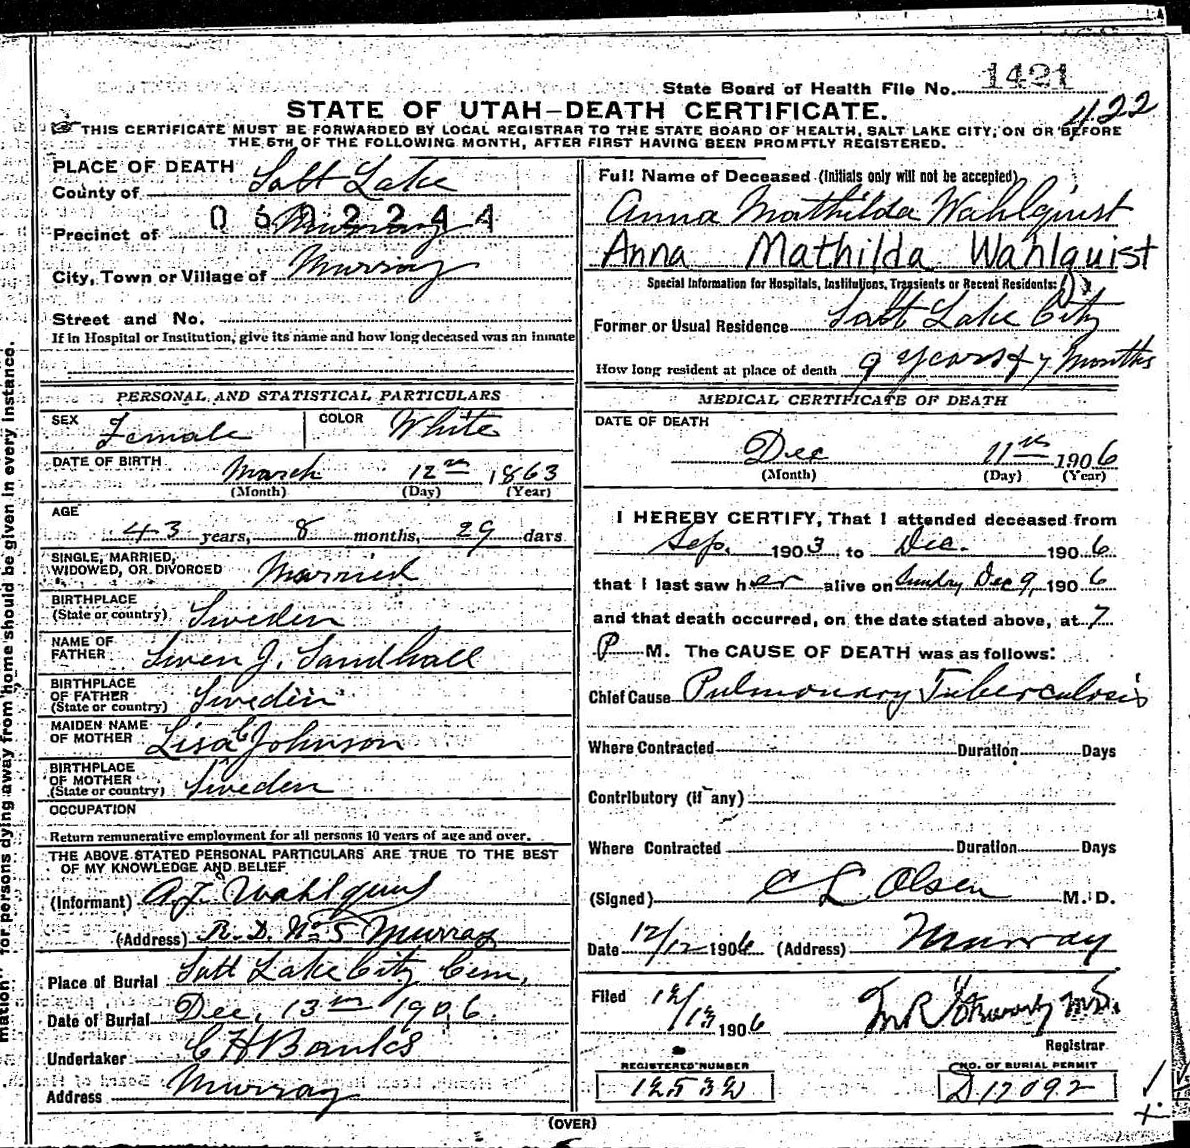 State Board of Health File No. 1421
422
STATE OF UTAH–DEATH CERTIFICATE.
THIS CERTIFICATE MUST BE FORWARDED BY LOCAL REGISTRAR TO THE STATE BOARD OF HEALTH, SALT LAKE CITY, ON OR BEFORE
THE 5TH OF THE FOLLOWING MONTH, AFTER FIRST HAVING BEEN PROMPTLY REGISTERED.
PLACE OF DEATH
County of Salt Lake
Precinct of Murray
City, Town or Village of Murray
Street and No.
If in Hospital or Institution, give its name and how long deceased was an inmate
PERSONAL AND STATISTICAL PARTICULARS
SEX Female COLOR White
DATE OF BIRTH March 12th 1863
(Month) (Day) (Year)
AGE
43 years, 8 months, 29 days
SINGLE, MARRIED,
WIDOWED, OR DIVORCED Married
BIRTHPLACE
(State or country) Sweden
NAME OF
FATHER Swen J. Sandhall
BIRTHPLACE
OF FATHER
(State or country) Sweden
MAIDEN NAME
OF MOTHER Lisa C Johnson
BIRTHPLACE
OF MOTHER
(State or country) Sweden
OCCUPATION
Return remunerative employment for all persons 10 years of age and over.
THE ABOVE STATED PERSONAL PARTICULARS ARE TRUE TO THE BEST
OF MY KNOWLEDGE AND BELIEF
(Informant) A.J. Wahlquist
(Address) R. D. No 5 Murray
Place of Burial Salt Lake City Cem,
Date of Burial Dec, 13th 1906.
Undertaker C H Banks
Address Murray
Full Name of Deceased (Initials only will not be accepted)
Anna Mathilda Wahlquist
Anna Mathilda Wahlquist
Special Information for Hospitals, Institutions, Transients or Recent Residents:
Former or Usual Residence Salt Lake City
How long resident at place of death 9 years & 7 months
MEDICAL CERTIFICATE OF DEATH
DATE OF DEATH
Dec 11th 1906
(Month) (Day) (Year)
I HEREBY CERTIFY, That I attended deceased from
Sep. 1903 to Dec. 1906
that I last saw her alive on Sunday Dec 9, 1906
and that death occurred, on the date stated above, at 7
P M. The CAUSE OF DEATH was as follows:
Chief Cause Pulmonary Tuberculosis
Where Contracted Duration Days
Contributory (if any)
Where Contracted Duration Days
(Signed) C L Olsen M. D.
Date 12/12 1906 (Address) Murray
Filed 12/13 1906
Registrar
REGISTERED NUMBER
12532
NO. OF BURIAL PERMIT
D 12092
(OVER)
for persons dying away from home should be given in every instance.